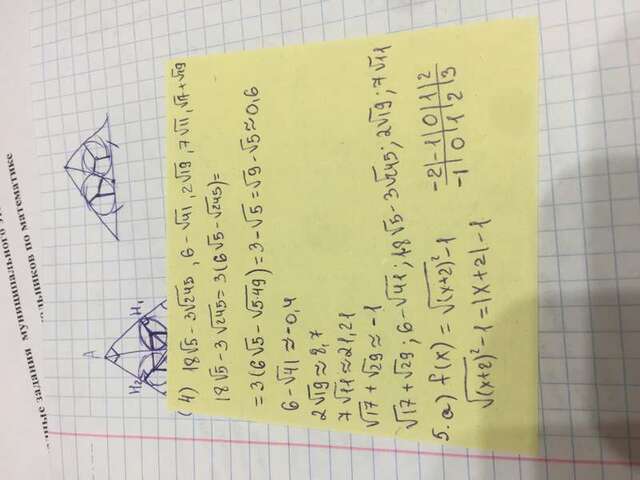 муниципального
задания
по математике
A
H₂ H₁
4) 18√5 - 3√245, 6 - √41, 2√19, 7√11, √17 + √29
18√5 - 3√245 = 3(6√5 - √245) =
= 3(6√5 - √5·49) = 3 - √5 = √9 - √5 ≈ 0,6
6 - √41 ≈ -0,4
2√19 ≈ 8,7
7√11 ≈ 21,21
√17 + √29 ≈ -1
√17 + √29; 6 - √41; 18√5 - 3√245; 2√19; 7√11
5. а) f(x) = √(x+2)² - 1
-2 | -1 | 0 | 1 | 2
-1 | 0 | 1 | 2 | 3
√(x+2)² - 1 = |x+2| - 1